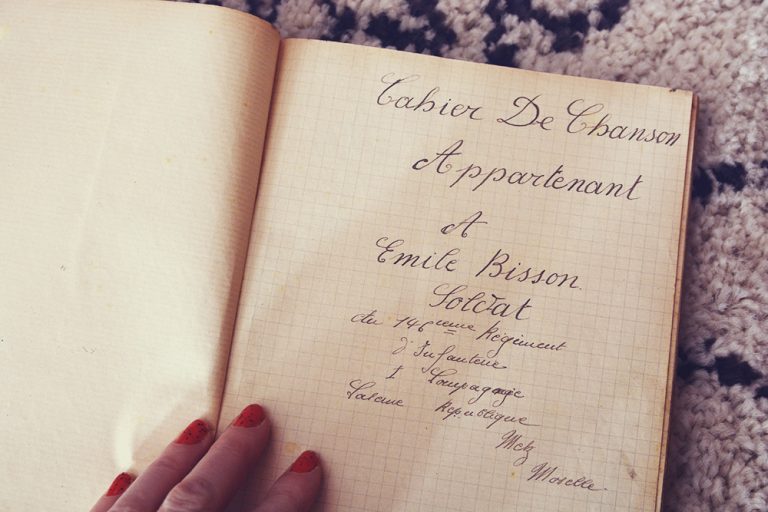 Cahier De Chanson
Appartenant
A
Emile Bisson.
Soldat
du 146ieme Régiment
d'Infanterie
I Compagnie
République
Metz
Moselle.